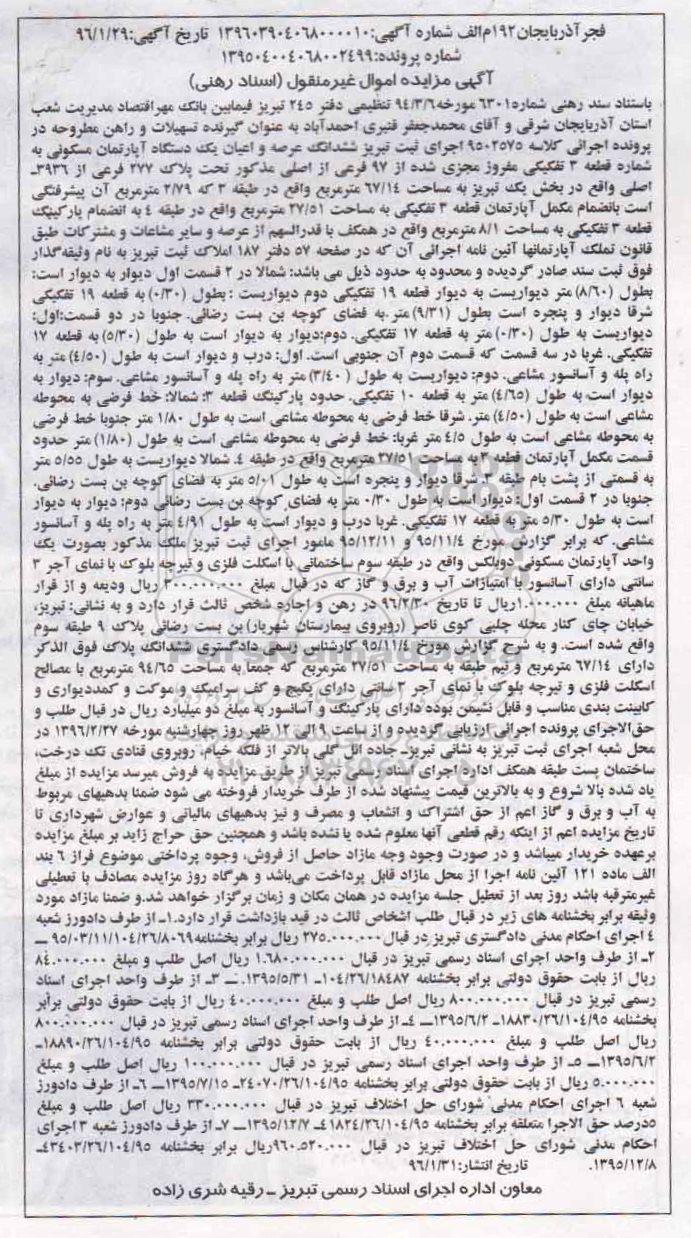 فجر آذربایجان ۱۹۲م‌الف شماره آگهی: ۱۳۹۶۰۳۹۰۴۰۶۸۰۰۰۰۱۰ تاریخ آگهی: ۹۶/۱/۲۹
شماره پرونده: ۱۳۹۵۰۴۰۰۴۰۶۸۰۰۲۴۹۹
آگهی مزایده اموال غیرمنقول (اسناد رهنی)
باستناد سند رهنی شماره ۶۳۰۱ مورخه ۹۴/۳/۶ تنظیمی دفتر ۲۴۵ تبریز فیمابین بانک مهر اقتصاد مدیریت شعب
استان آذربایجان شرقی و آقای محمدجعفر قنبری احمدآباد به عنوان گیرنده تسهیلات و راهن مطروحه در
پرونده اجرائی کلاسه ۹۵۰۲۵۷۵ اجرای ثبت تبریز ششدانگ عرصه و اعیان یک دستگاه آپارتمان مسکونی به
شماره قطعه ۳ تفکیکی مفروز مجزی شده از ۹۷ فرعی از اصلی مذکور تحت پلاک ۲۷۷ فرعی از ۳۹۳۶ـ
اصلی واقع در بخش یک تبریز به مساحت ۶۷/۱۴ مترمربع واقع در طبقه ۳ که ۲/۷۹ مترمربع آن پیشرفتگی
است بانضمام مکمل آپارتمان قطعه ۳ تفکیکی به مساحت ۲۷/۵۱ مترمربع واقع در طبقه ۴ به انضمام پارکینگ
قطعه ۳ تفکیکی به مساحت ۸/۱ مترمربع واقع در همکف با قدرالسهم از عرصه و سایر مشاعات و مشترکات طبق
قانون تملک آپارتمانها آئین نامه اجرائی آن که در صفحه ۵۷ دفتر ۱۸۷ املاک ثبت تبریز به نام وثیقه‌گذار
فوق ثبت سند صادر گردیده و محدود به حدود ذیل می باشد: شمالا در ۲ قسمت اول دیوار به دیوار است:
بطول (۸/۶۰) متر دیواریست به دیوار قطعه ۱۹ تفکیکی دوم دیواریست : بطول (۰/۳۰) به قطعه ۱۹ تفکیکی
شرقا دیوار و پنجره است بطول (۹/۳۱) متر به فضای کوچه بن بست رضائی. جنوبا در دو قسمت: اول:
دیواریست به طول (۰/۳۰) متر به قطعه ۱۷ تفکیکی. دوم: دیوار به دیوار است به طول (۵/۳۰) به قطعه ۱۷
تفکیکی. غربا در سه قسمت که قسمت دوم آن جنوبی است. اول: درب و دیوار است به طول (۴/۵۰) متر به
راه پله و آسانسور مشاعی. دوم: دیواریست به طول (۳/۴۰) متر به راه پله و آسانسور مشاعی. سوم: دیوار به
دیوار است به طول (۴/۶۵) متر به قطعه ۱۰ تفکیکی. حدود پارکینگ قطعه ۳: شمالا: خط فرضی به محوطه
مشاعی است به طول (۴/۵۰) متر. شرقا خط فرضی به محوطه مشاعی است به طول ۱/۸۰ متر جنوبا خط فرضی
به محوطه مشاعی است به طول ۴/۵ متر غربا: خط فرضی به محوطه مشاعی است به طول (۱/۸۰) متر حدود
قسمت مکمل آپارتمان قطعه ۳ به مساحت ۲۷/۵۱ مترمربع واقع در طبقه ۴. شمالا دیواریست به طول ۵/۵۵ متر
به قسمتی از پشت بام طبقه ۳. شرقا دیوار و پنجره است به طول ۵/۰۱ متر به فضای کوچه بن بست رضائی.
جنوبا در ۲ قسمت اول: دیوار است به طول ۰/۳۰ متر به فضای کوچه بن بست رضائی دوم: دیوار به دیوار
است به طول ۵/۳۰ متر به قطعه ۱۷ تفکیکی. غربا درب و دیوار است به طول ۴/۹۱ متر به راه پله و آسانسور
مشاعی. که برابر گزارش مورخ ۹۵/۱۱/۴ و ۹۵/۱۲/۱۱ مامور اجرای ثبت تبریز ملک مذکور بصورت یک
واحد آپارتمان مسکونی دوبلکس واقع در طبقه سوم ساختمانی با اسکلت فلزی و تیرچه بلوک با نمای آجر ۳
سانتی دارای آسانسور با امتیازات آب و برق و گاز که در قبال مبلغ ۳۰۰.۰۰۰.۰۰۰ ریال ودیعه و از قرار
ماهیانه مبلغ ۱.۰۰۰.۰۰۰ریال تا تاریخ ۹۶/۲/۳۰ در رهن و اجاره شخص ثالث قرار دارد و به نشانی: تبریز،
خیابان چای کنار محله چلبی کوی ناصر (روبروی بیمارستان شهریار) بن بست رضائی پلاک ۹ طبقه سوم
واقع شده است. و به شرح گزارش مورخ ۹۵/۱۱/۴ کارشناس رسمی دادگستری ششدانگ پلاک فوق الذکر
دارای ۶۷/۱۴ مترمربع و نیم طبقه به مساحت ۲۷/۵۱ مترمربع که جمعا به مساحت ۹۴/۶۵ مترمربع با مصالح
اسکلت فلزی و تیرچه بلوک با نمای آجر ۳ سانتی دارای پکیج و کف سرامیک و موکت و کمددیواری و
کابینت بندی مناسب و قابل نشیمن بوده دارای پارکینگ و آسانسور به مبلغ دو میلیارد ریال در قبال طلب و
حق‌الاجرای پرونده اجرائی ارزیابی گردیده و از ساعت ۹ الی ۱۲ ظهر روز چهارشنبه مورخه ۱۳۹۶/۲/۲۷ در
محل شعبه اجرای ثبت تبریز به نشانی تبریزـ جاده ائل گلی بالاتر از فلکه خیام، روبروی قنادی تک درخت،
ساختمان پست طبقه همکف اداره اجرای اسناد رسمی تبریز از طریق مزایده به فروش میرسد مزایده از مبلغ
یاد شده بالا شروع و به بالاترین قیمت پیشنهاد شده از طرف خریدار فروخته می شود ضمنا بدهیهای مربوط
به آب و برق و گاز اعم از حق اشتراک و انشعاب و مصرف و نیز بدهیهای مالیاتی و عوارض شهرداری تا
تاریخ مزایده اعم از اینکه رقم قطعی آنها معلوم شده یا نشده باشد و همچنین حق حراج زاید بر مبلغ مزایده
برعهده خریدار میباشد و در صورت وجود وجه مازاد حاصل از فروش، وجوه پرداختی موضوع فراز ۶ بند
الف ماده ۱۲۱ آئین نامه اجرا از محل مازاد قابل پرداخت می‌باشد و هرگاه روز مزایده مصادف با تعطیلی
غیرمترقبه باشد روز بعد از تعطیل جلسه مزایده در همان مکان و زمان برگزار خواهد شد. و ضمنا مازاد مورد
وثیقه برابر بخشنامه های زیر در قبال طلب اشخاص ثالث در قید بازداشت قرار دارد.۱ـ از طرف دادورز شعبه
۴ اجرای احکام مدنی دادگستری تبریز در قبال ۲۷۵.۰۰۰.۰۰۰ ریال برابر بخشنامه ۹۵/۰۳/۱۱/۱۰۴/۲۶/۸۰۶۹ ـ
۲ـ از طرف واحد اجرای اسناد رسمی تبریز در قبال ۱.۶۸۰.۰۰۰.۰۰۰ ریال اصل طلب و مبلغ ۸۴.۰۰۰.۰۰۰
ریال از بابت حقوق دولتی برابر بخشنامه ۱۰۴/۲۶/۱۸۴۸۷ـ ۱۳۹۵/۵/۳۱. ـ ۳ـ از طرف واحد اجرای اسناد
رسمی تبریز در قبال ۸۰۰.۰۰۰.۰۰۰ ریال اصل طلب و مبلغ ۴۰.۰۰۰.۰۰۰ ریال از بابت حقوق دولتی برابر
بخشنامه ۱۸۸۳۰/۲۶/۱۰۴/۹۵ـ ۱۳۹۵/۶/۲ـ ۴ـ از طرف واحد اجرای اسناد رسمی تبریز در قبال ۸۰۰.۰۰۰.۰۰۰
ریال اصل طلب و مبلغ ۴۰.۰۰۰.۰۰۰ ریال از بابت حقوق دولتی برابر بخشنامه ۱۸۸۹۰/۲۶/۱۰۴/۹۵ـ
۱۳۹۵/۶/۲ـ ۵ـ از طرف واحد اجرای اسناد رسمی تبریز در قبال ۱۰۰.۰۰۰.۰۰۰ ریال اصل طلب و مبلغ
۵.۰۰۰.۰۰۰ ریال از بابت حقوق دولتی برابر بخشنامه ۲۴۰۷۰/۲۶/۱۰۴/۹۵ـ ۱۳۹۵/۷/۱۵ـ ۶ـ از طرف دادورز
شعبه ۶ اجرای احکام مدنی شورای حل اختلاف تبریز در قبال ۳۳۰.۰۰۰.۰۰۰ ریال اصل طلب و مبلغ
۵درصد حق الاجرا متعلقه برابر بخشنامه ۴۱۸۲۴/۲۶/۱۰۴/۹۵ـ ۱۳۹۵/۱۲/۷ـ ۷ـ از طرف دادورز شعبه ۳ اجرای
احکام مدنی شورای حل اختلاف تبریز در قبال ۹۶۰.۵۲۰.۰۰۰ریال برابر بخشنامه ۴۳۴۰۳/۲۶/۱۰۴/۹۵ـ
۱۳۹۵/۱۲/۸. تاریخ انتشار: ۹۶/۱/۳۱
معاون اداره اجرای اسناد رسمی تبریز ـ رقیه شری زاده